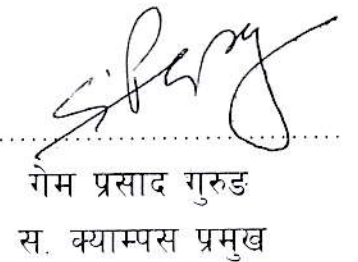 गेम प्रसाद गुरुङ
स. क्याम्पस प्रमुख